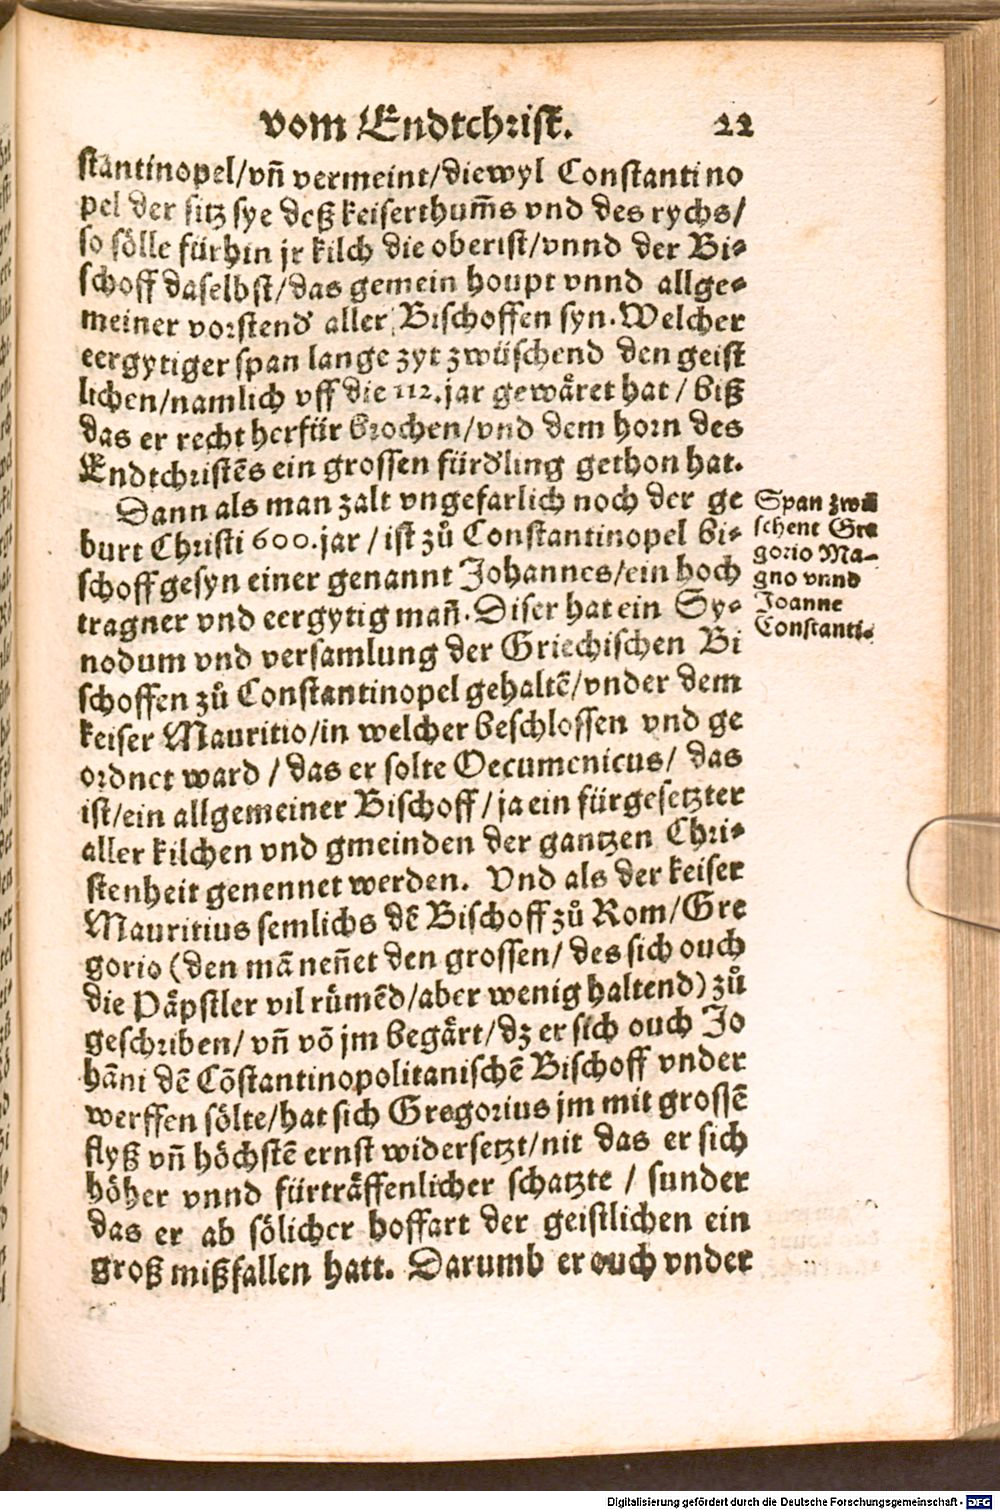 vom Endtchrist. 22
stantinopel/vñ vermeint/diewyl Constantino
pel der sitz sye deß keiserthum̃s vnd des rychs/
so sölle fürhin jr kilch die oberist/vnnd der Bi⸗
schoff daselbst/das gemein houpt vnnd allge⸗
meiner vorstend aller Bischoffen syn. Welcher
eergytiger span lange zyt zwüschend den geist
lichen/namlich vff die 112. jar gewäret hat / biß
das er recht herfür brochen/vnd dem horn des
Endtchristẽs ein grossen fürdling gethon hat.
Dann als man zalt vngefarlich noch der ge
burt Christi 600. jar / ist zů Constantinopel bi⸗
schoff gesyn einer genannt Johannes/ein hoch
tragner vnd eergytig mañ. Diser hat ein Sy⸗
nodum vnd versamlung der Griechischen Bi
schoffen zů Constantinopel gehaltẽ/vnder dem
keiser Mauritio/in welcher beschlossen vnd ge
ordnet ward / das er solte Oecumenicus/ das
ist/ein allgemeiner Bischoff/ja ein fürgesetzter
aller kilchen vnd gmeinden der gantzen Chri⸗
stenheit genennet werden. Vnd als der keiser
Mauritius semlichs dẽ Bischoff zů Rom/Gre
gorio (den mã neñet den grossen/ des sich ouch
die Päpstler vil rümẽd/aber wenig haltend) zů
geschriben/ vñ võ jm begärt/dz er sich ouch Jo
hãni dẽ Cõstantinopolitanischẽ Bischoff vnder
werffen sölte/hat sich Gregorius jm mit grossẽ
flyß vñ höchstẽ ernst widersetzt/nit das er sich
höher vnnd fürträffenlicher schatzte / sunder
das er ab sölicher hoffart der geistlichen ein
groß mißfallen hatt. Darumb er ouch vnder
Span zwü
schent Gre
gorio Ma⸗
gno vnnd
Joanne
Constanti⸗
Digitalisierung gefördert durch die Deutsche Forschungsgemeinschaft - DFG